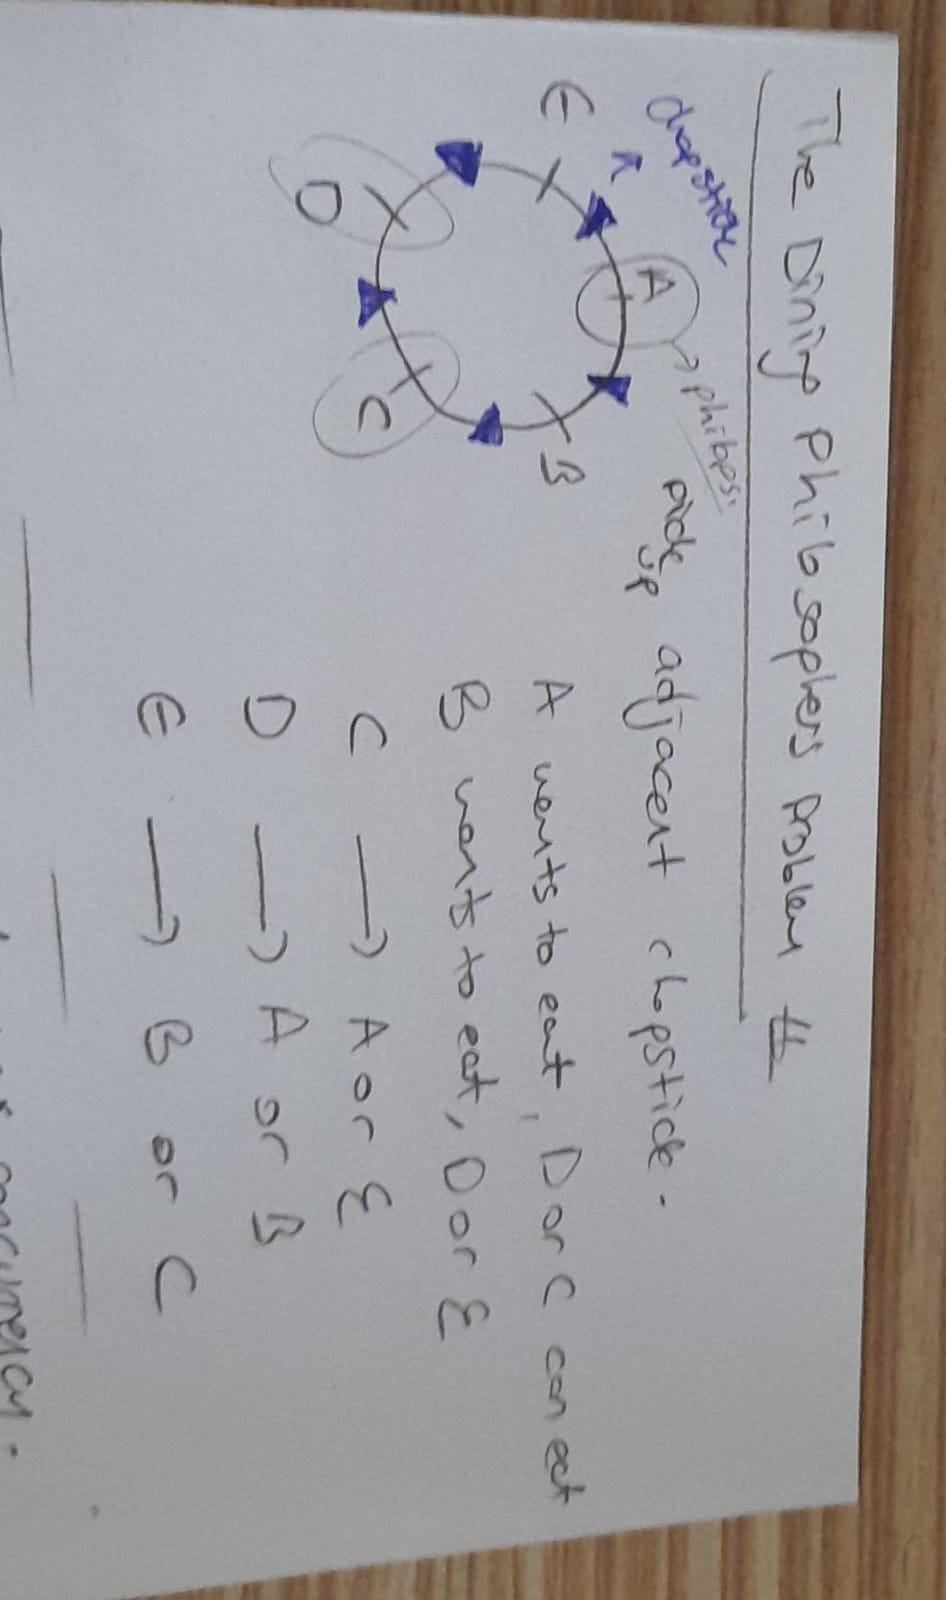 The Dining Philosophers Problem #
chopstick
A
philops.
E
B
D
C
pick up adjacent chopstick.
A wants to eat, D or C can eat
B wants to eat, D or E
C → A or E
D → A or B
E → B or C
concurrency.